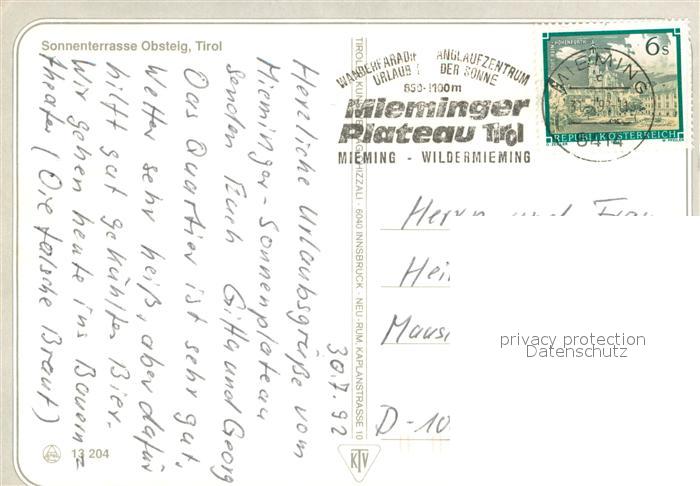 Sonnenterrasse Obsteig, Tirol
WANDERPARADIES LANGLAUFZENTRUM
URLAUB DER SONNE
850-1100m
Mieminger
Plateau Tirol
MIEMING - WILDERMIEMING
6 s
STIFT WILHERING
REPUBLIK ÖSTERREICH
MIEMING
6414
30.7.92
Herzliche Urlaubsgrüße vom
Mieminger-Sonnenplateau
senden Euch Gitta und Georg
Das Quartier ist sehr gut.
Wetter sehr heiß, aber dafür
hilft gut gekühltes Bier.
Wir gehen heute ins Bauern=
theater (Die falsche Braut)
6040 INNSBRUCK - NEU-RUM, KAPLANSTRASSE 10
Herrn und Frau
Hei
Maus
D-10
privacy protection
Datenschutz
13 204
KTV